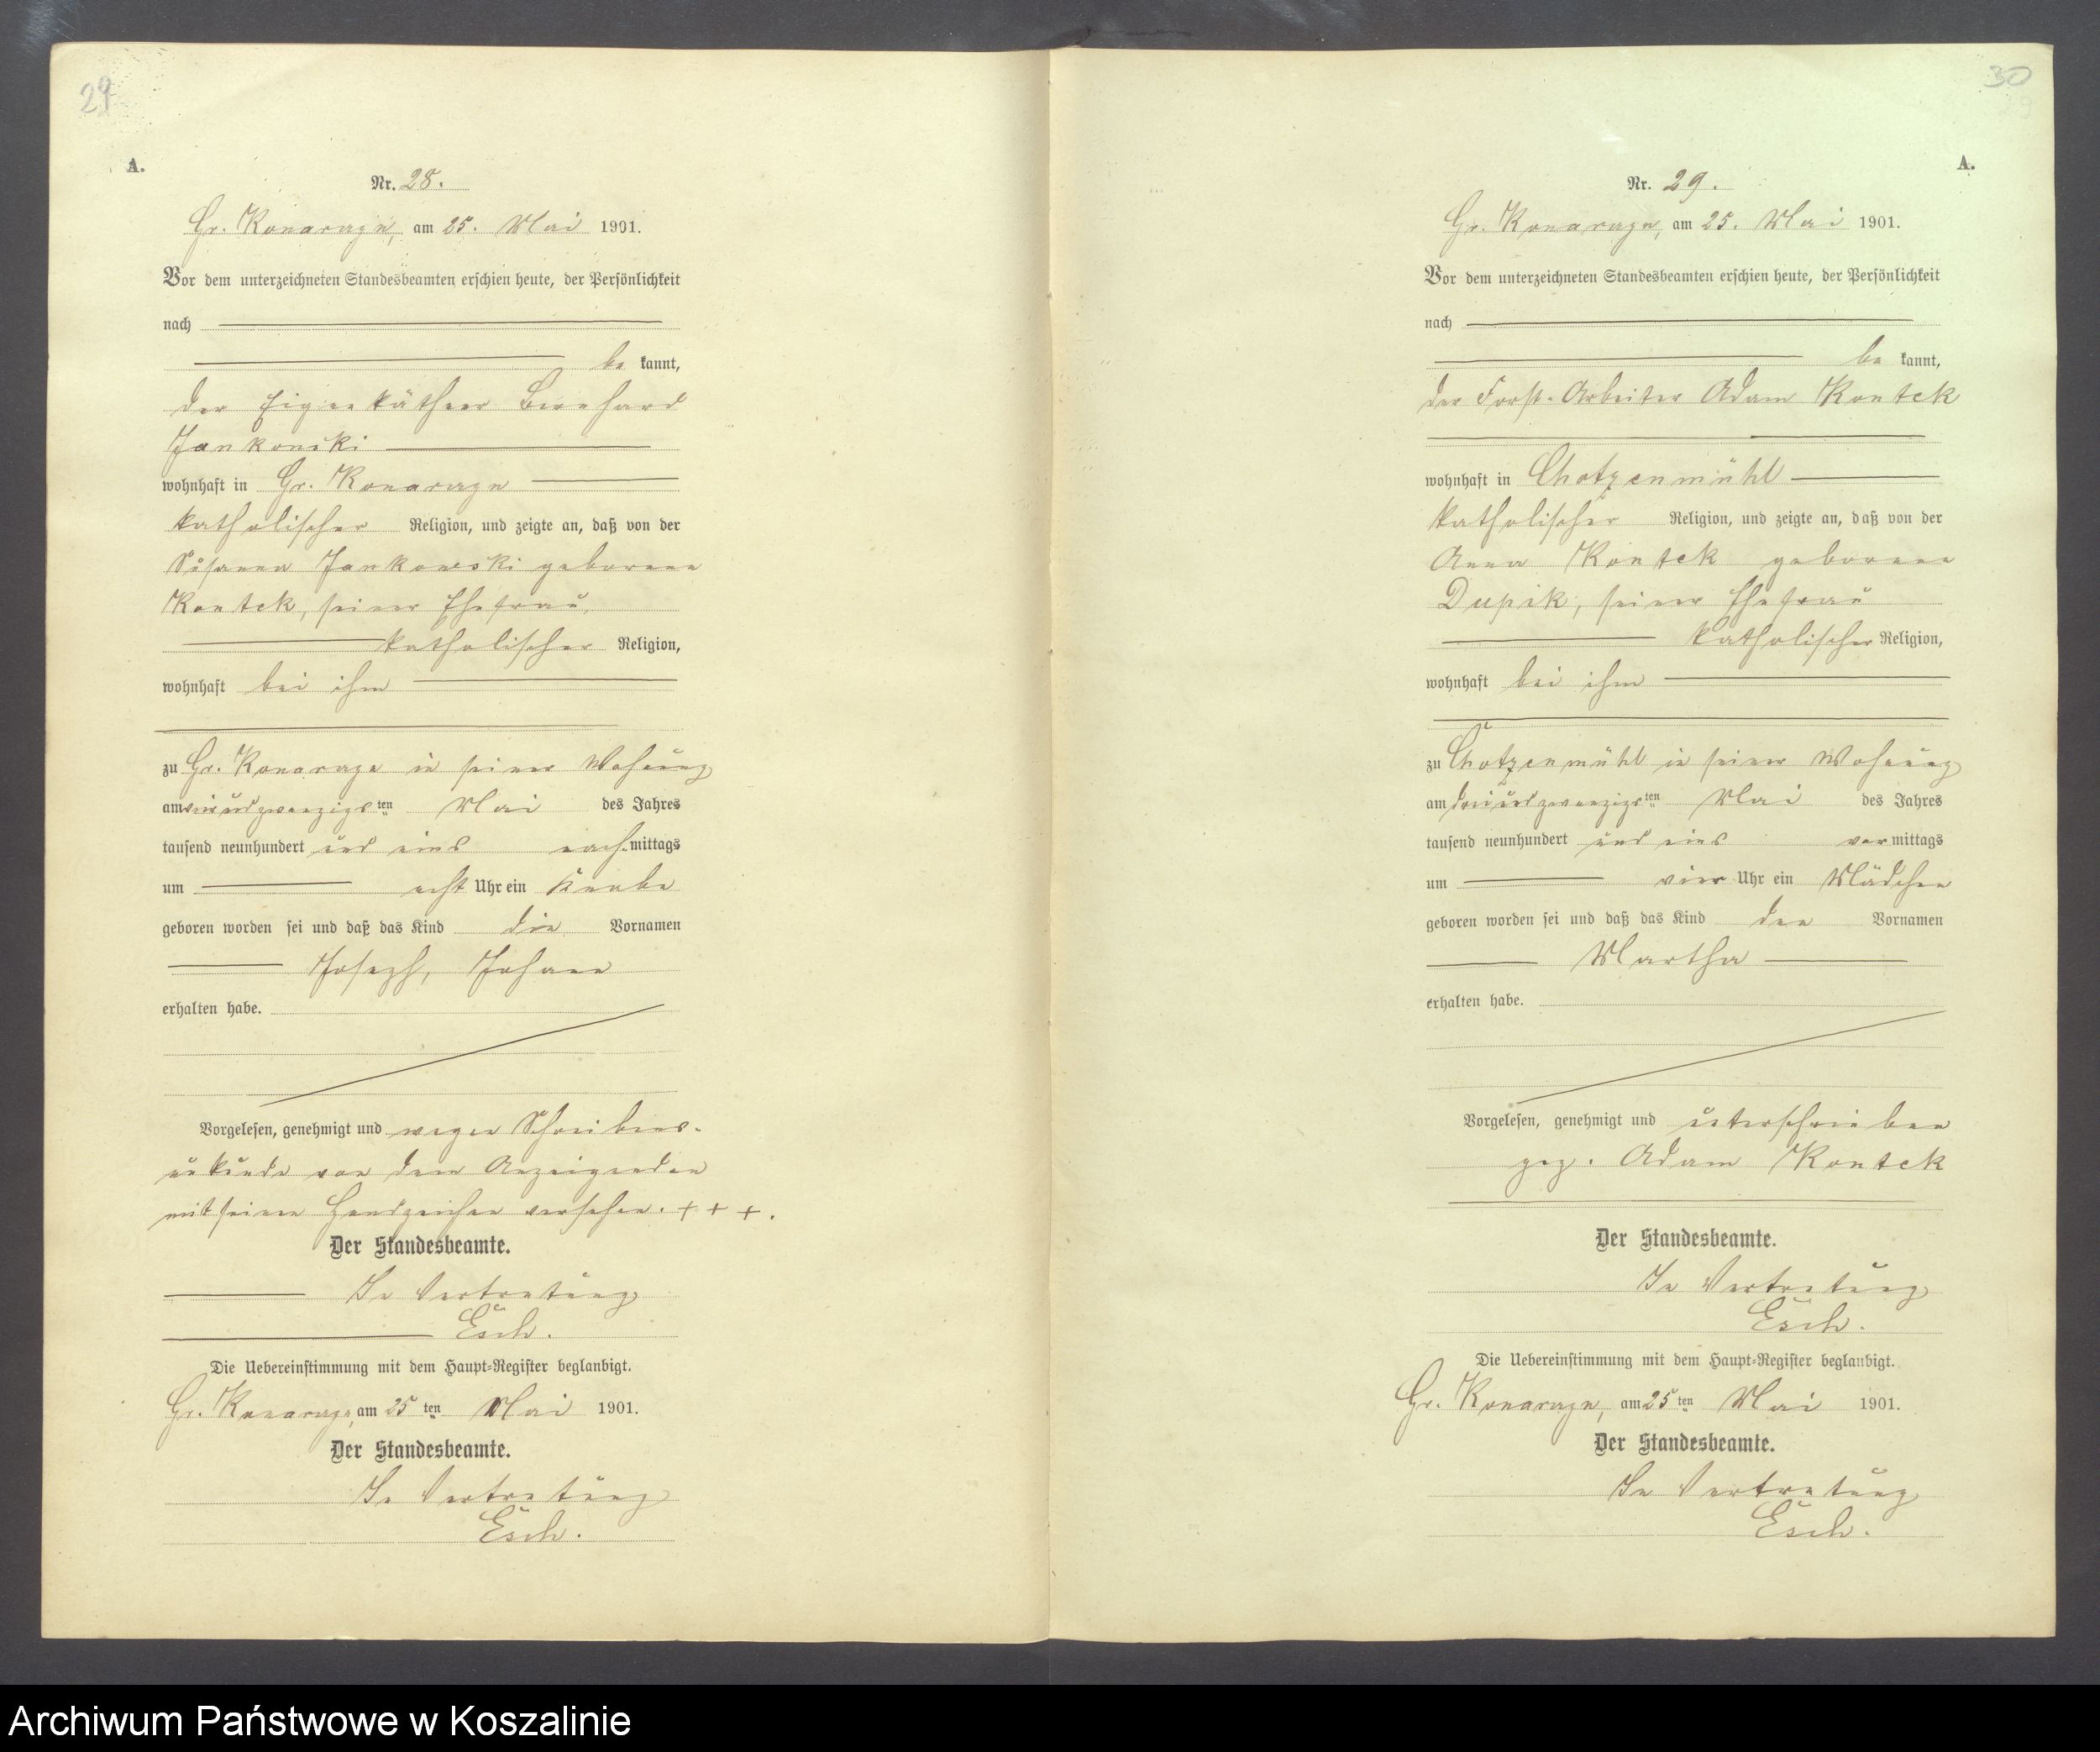 29
A.
Nr. 28.
Gr. Konarczyn, am 25. Mai 1901.
Vor dem unterzeichneten Standesbeamten erschien heute, der Persönlichkeit
nach
be kannt,
der Eigenkäthner Bernhard
Jankowski
wohnhaft in Gr. Konarczyn
katholischer Religion, und zeigte an, daß von der
Susanna Jankowski geborene
Kontek, seiner Ehefrau,
katholischer Religion,
wohnhaft bei ihm
zu Gr. Konarczyn in seiner Wohnung
am ein und zwanzigsten Mai des Jahres
tausend neunhundert und eins nach mittags
um acht Uhr ein Knabe
geboren worden sei und daß das Kind die Vornamen
Joseph, Johann
erhalten habe.
Vorgelesen, genehmigt und wegen Schreibens-
unkunde von dem Anzeigenden
mit seinen Handzeichen versehen. + + +.
Der Standesbeamte.
In Vertretung
Esch.
Die Uebereinstimmung mit dem Haupt-Register beglaubigt.
Gr. Konarczyn, am 25 ten Mai 1901.
Der Standesbeamte.
In Vertretung
Esch.
30
29
A.
Nr. 29.
Gr. Konarczyn, am 25. Mai 1901.
Vor dem unterzeichneten Standesbeamten erschien heute, der Persönlichkeit
nach
be kannt,
der Forst-Arbeiter Adam Kontek
wohnhaft in Chotzenmühl
katholischer Religion, und zeigte an, daß von der
Anna Kontek geborene
Dupik, seiner Ehefrau
katholischer Religion,
wohnhaft bei ihm
zu Chotzenmühl in seiner Wohnung
am drei und zwanzigsten Mai des Jahres
tausend neunhundert und eins vor mittags
um vier Uhr ein Mädchen
geboren worden sei und daß das Kind den Vornamen
Martha
erhalten habe.
Vorgelesen, genehmigt und unterschrieben
gez. Adam Kontek
Der Standesbeamte.
In Vertretung
Esch.
Die Uebereinstimmung mit dem Haupt-Register beglaubigt.
Gr. Konarczyn, am 25 ten Mai 1901.
Der Standesbeamte.
In Vertretung
Esch.
Archiwum Państwowe w Koszalinie